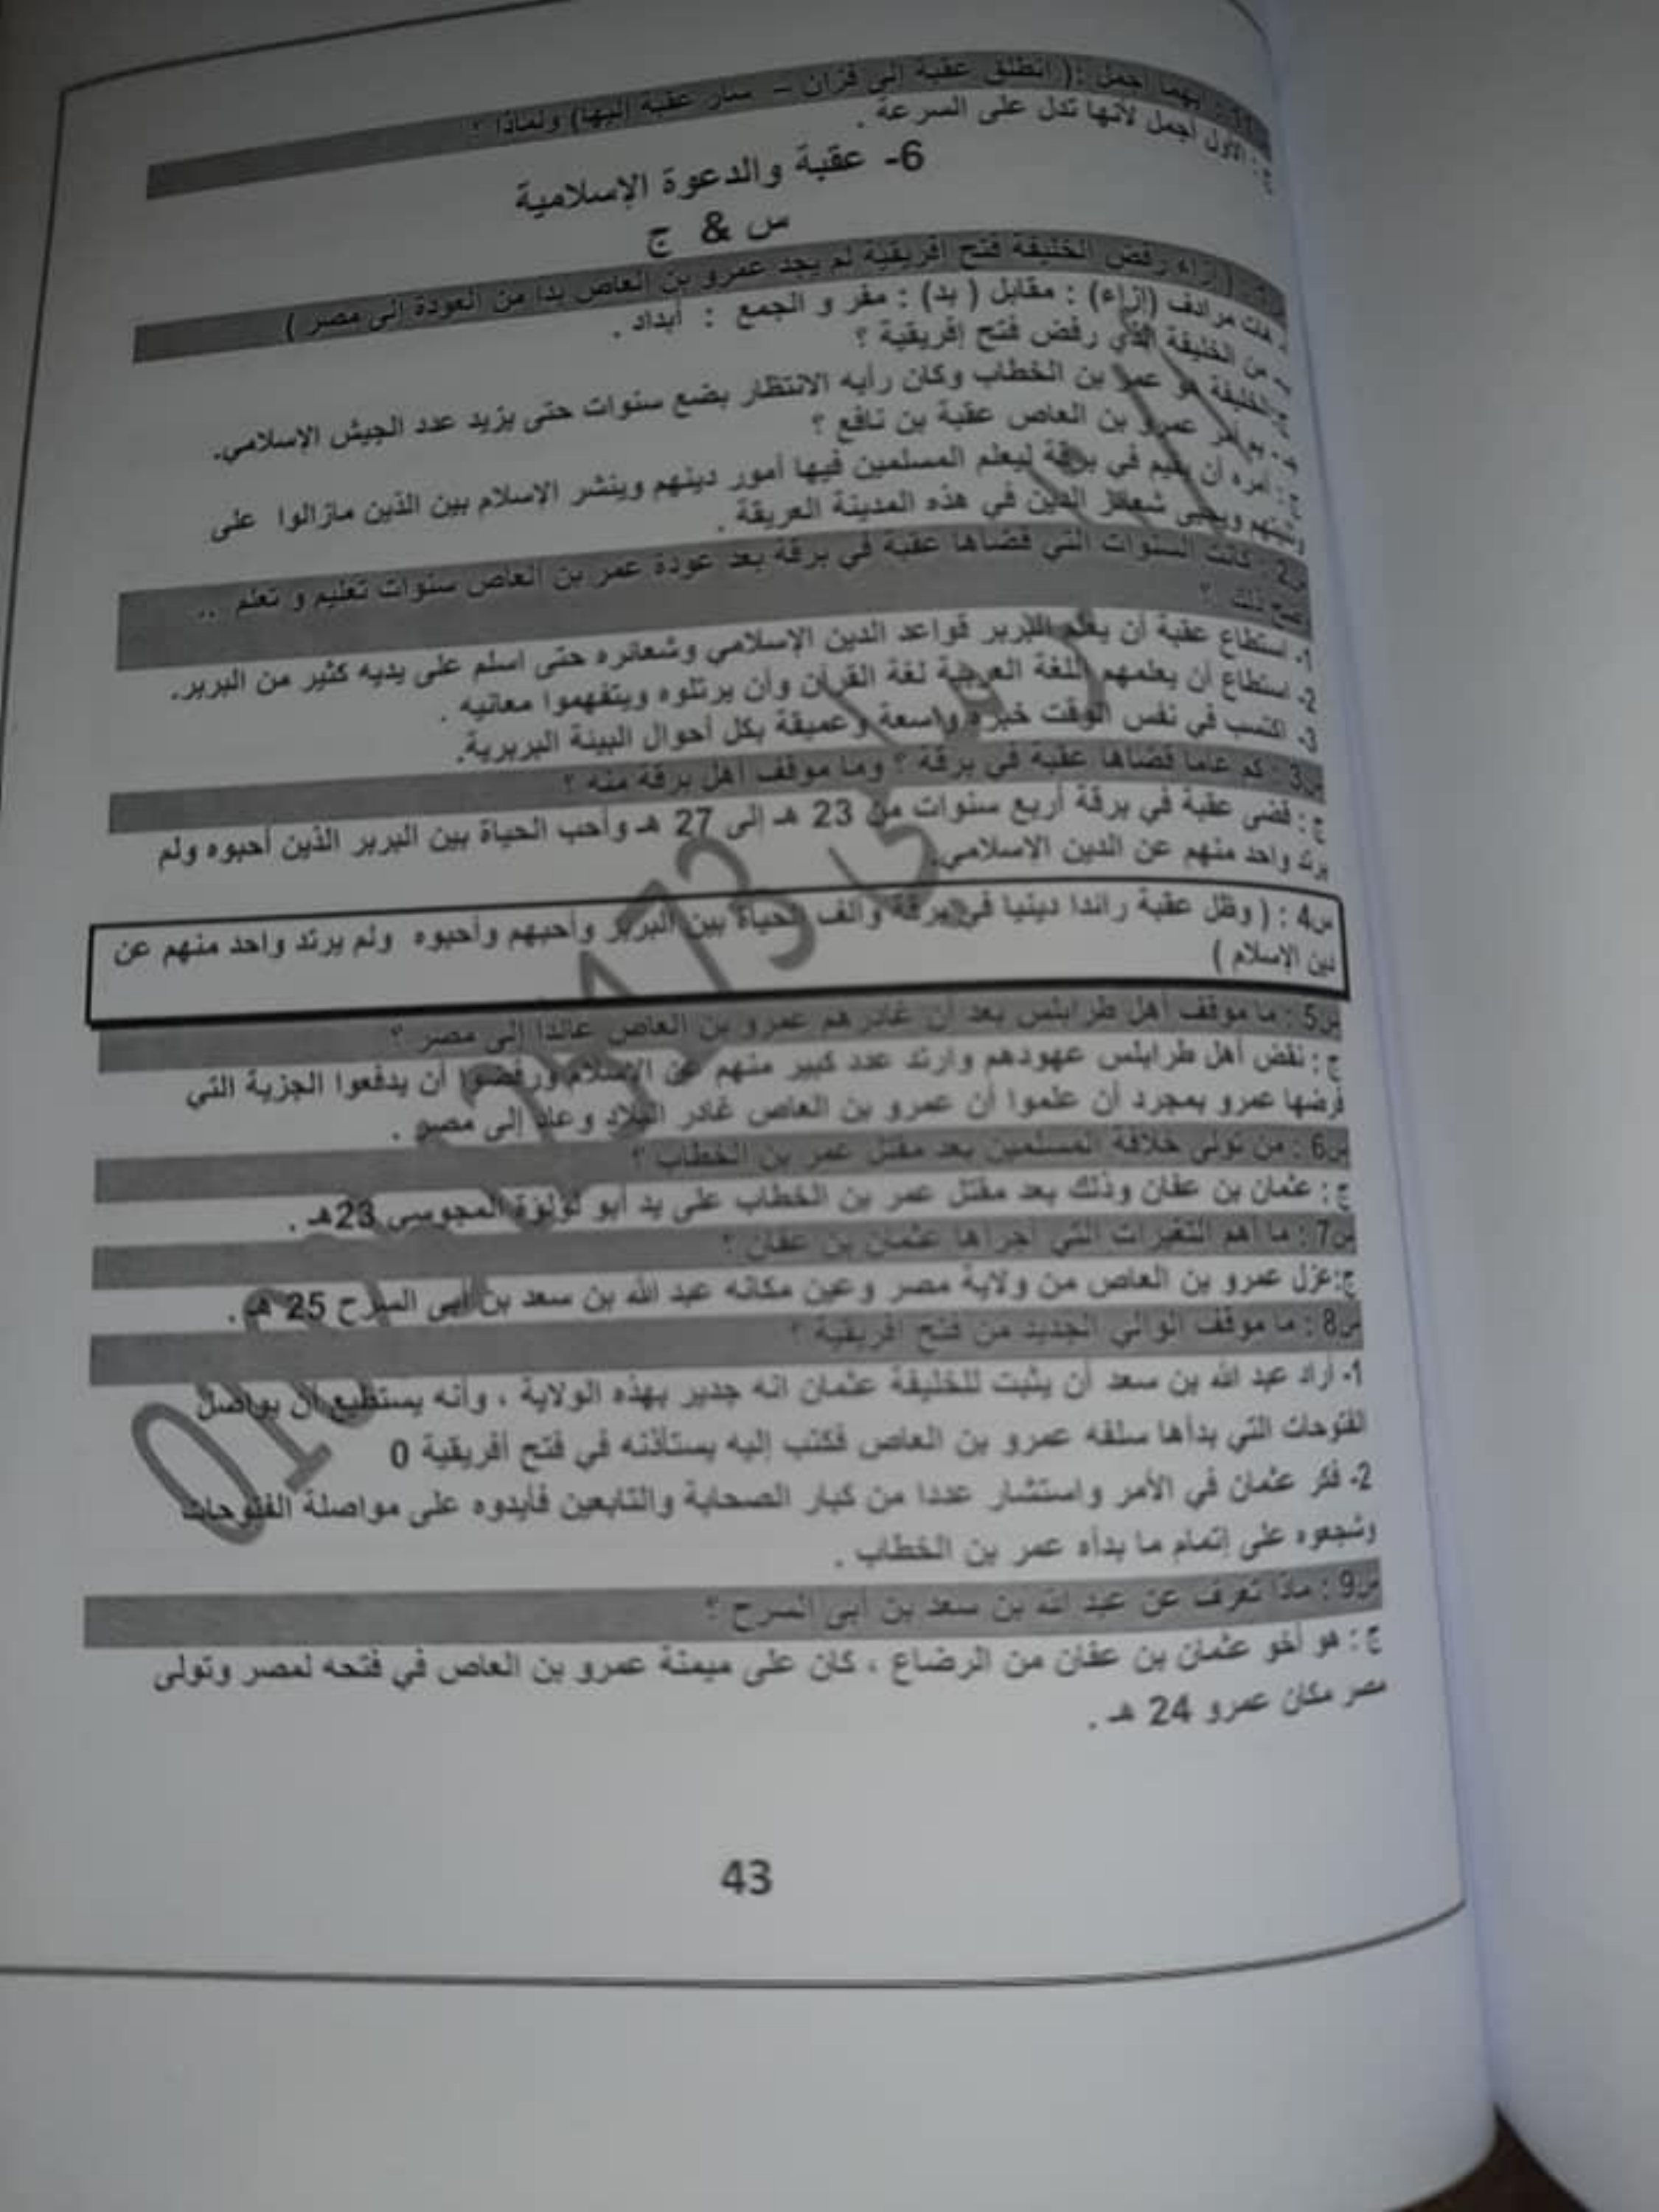 س11 : أيهما أجمل :( انطلق عقبة إلى فزان – سار عقبة إليها) ولماذا ؟
ج : الأول أجمل لأنها تدل على السرعة .
6- عقبة والدعوة الإسلامية
س & ج
( إزاء رفض الخليفة فتح أفريقية لم يجد عمرو بن العاص بدا من العودة إلى مصر )
هات مرادف (إزاء) : مقابل ( بد) : مفر و الجمع : أبداد .
من الخليفة الذي رفض فتح إفريقية ؟
ج:الخليفة هو عمر بن الخطاب وكان رأيه الانتظار بضع سنوات حتى يزيد عدد الجيش الإسلامي.
بم أمر عمرو بن العاص عقبة بن نافع ؟
ج : أمره أن يقيم في برقة ليعلم المسلمين فيها أمور دينهم وينشر الإسلام بين الذين مازالوا على
وثنيتهم ويحيى شعائر الدين في هذه المدينة العريقة .
س2 : كانت السنوات التي قضاها عقبة في برقة بعد عودة عمر بن العاص سنوات تعليم و تعلم ..
وضح ذلك ؟
1- استطاع عقبة أن يعلم البربر قواعد الدين الإسلامي وشعائره حتى اسلم على يديه كثير من البربر.
2- استطاع أن يعلمهم اللغة العربية لغة القرآن وأن يرتلوه ويتفهموا معانيه .
3- اكتسب في نفس الوقت خبرة واسعة وعميقة بكل أحوال البيئة البربرية.
س3 : كم عاما قضاها عقبة في برقة ؟ وما موقف أهل برقة منه ؟
ج : قضى عقبة في برقة أربع سنوات من 23 هـ إلى 27 هـ وأحب الحياة بين البربر الذين أحبوه ولم
يرتد واحد منهم عن الدين الإسلامي.
س4 : ( وظل عقبة رائدا دينيا في برقة وألف الحياة بين البربر وأحبهم وأحبوه ولم يرتد واحد منهم عن
دين الإسلام )
س5 : ما موقف أهل طرابلس بعد أن غادرهم عمرو بن العاص عائدا إلى مصر ؟
ج : نقض أهل طرابلس عهودهم وارتد عدد كبير منهم عن الإسلام ورفضوا أن يدفعوا الجزية التي
فرضها عمرو بمجرد أن علموا أن عمرو بن العاص غادر البلاد وعاد إلى مصر .
س6 : من تولى خلافة المسلمين بعد مقتل عمر بن الخطاب ؟
ج : عثمان بن عفان وذلك بعد مقتل عمر بن الخطاب على يد أبو لؤلؤة المجوسي 23هـ .
س7 : ما أهم التغيرات التي أجراها عثمان بن عفان ؟
ج:عزل عمرو بن العاص من ولاية مصر وعين مكانه عبد الله بن سعد بن أبى السرح 25 هـ .
س8 : ما موقف الوالي الجديد من فتح أفريقية ؟
1- أراد عبد الله بن سعد أن يثبت للخليفة عثمان انه جدير بهذه الولاية ، وأنه يستطيع أن يواصل
الفتوحات التي بدأها سلفه عمرو بن العاص فكتب إليه يستأذنه في فتح أفريقية 0
2- فكر عثمان في الأمر واستشار عددا من كبار الصحابة والتابعين فأيدوه على مواصلة الفتوحات
وشجعوه على إتمام ما بدأه عمر بن الخطاب .
س9 : ماذا تعرف عن عبد الله بن سعد بن أبى السرح ؟
ج : هو أخو عثمان بن عفان من الرضاع ، كان على ميمنة عمرو بن العاص في فتحه لمصر وتولى
مصر مكان عمرو 24 هـ .
43